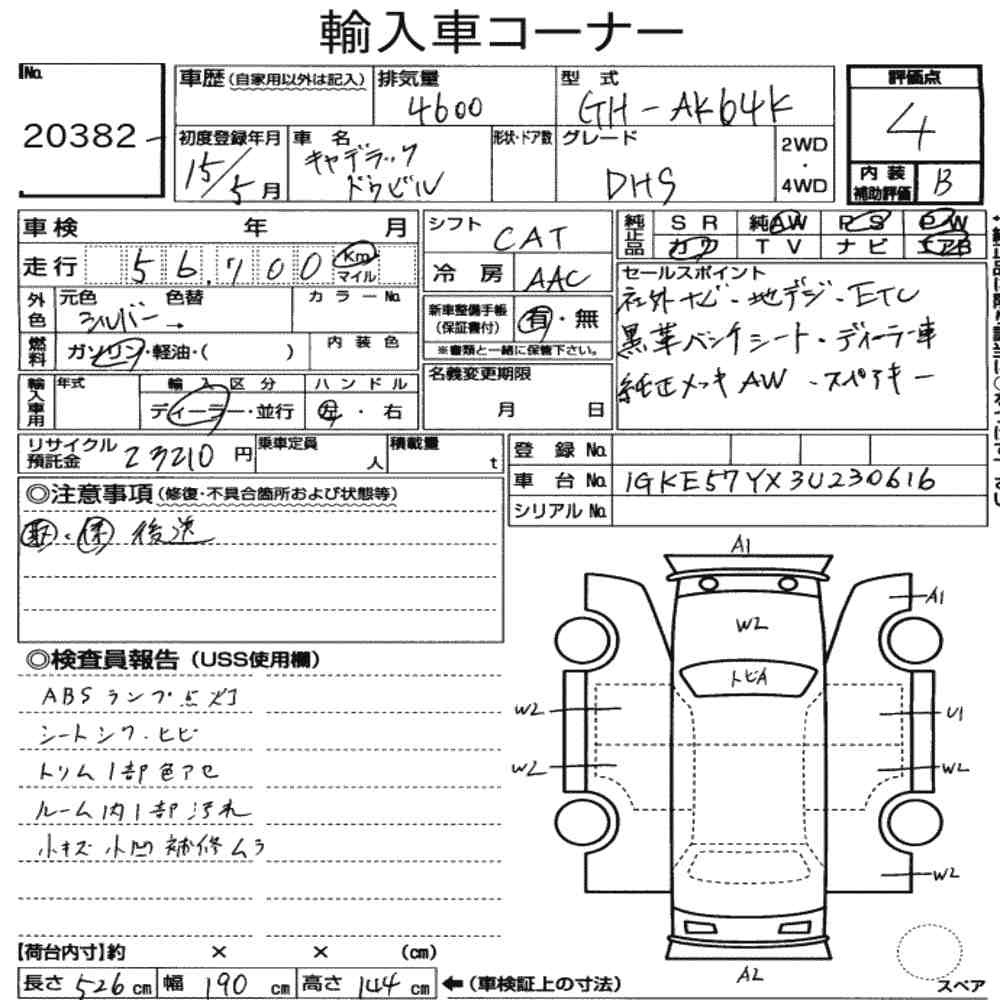 輸入車コーナー
No. 20382
車歴 (自家用以外は記入)
排気量 4600
型式 GH-AK64K
評価点 4
初度登録年月 15/5月
車名 キャデラック ドゥビル
形状・ドア数
グレード DHS
2WD・4WD
内装補助評価 B
車検 年 月
シフト CAT
純正品 SR 純AW PS PW
カワ TV ナビ エアB
走行 56,700 Km マイル
冷房 AAC
セールスポイント
社外ナビ・地デジ・ETC
黒革パンチシート・ディーラー車
純正メッキAW・スペアキー
外色 元色 シルバー→ 色替 カラーNo.
新車整備手帳(保証書付) 有・無
※書類と一緒に保管下さい。
燃料 ガソリン・軽油・( ) 内装色
名義変更期限 月 日
輸入車用 年式 輸入区分 ハンドル
ディーラー・並行 左・右
リサイクル預託金 23210円 乗車定員 人 積載量 t
登録No.
車台No. 1GKE57YX3U230616
シリアルNo.
◎注意事項 (修復・不具合箇所および状態等)
取・保 後送
◎検査員報告 (USS使用欄)
ABSランプ点灯
シートシワ・ヒビ
トリム1部色アセ
ルーム内1部汚れ
小キズ小凹補修ムラ
A1
A1
W2
トビA
W2
U1
W2
W2
W2
A2
【荷台内寸】約 × × (cm)
長さ 526 cm 幅 190 cm 高さ 144 cm ←(車検証上の寸法)
スペア